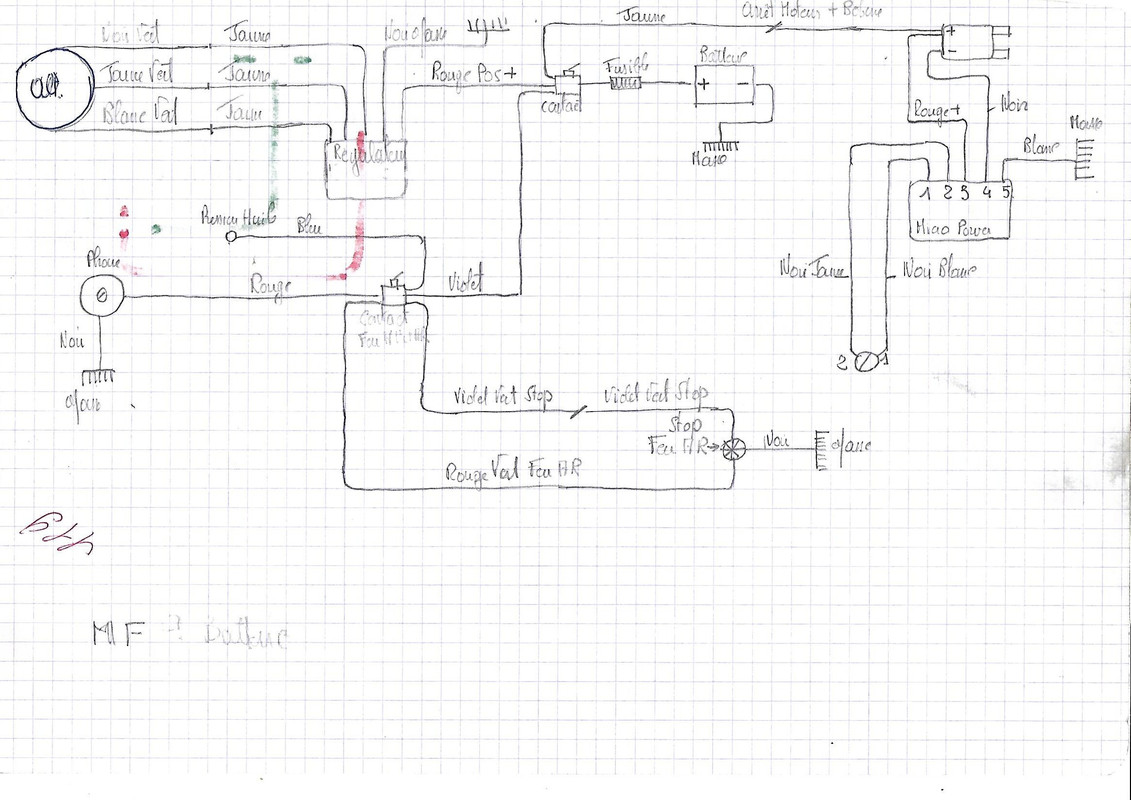 Noir Vert
Jaune
Noir Masse
Jaune
Arrêt Moteur + Bobine
Alt.
Jaune Vert
Jaune
Rouge Pos +
contact
Fusible
Batterie
+ -
+
-
Blanc Vert
Jaune
Regulateur
Masse
Rouge +
Noir
Blanc
Masse
1 2 3 4 5
Micro Power
Pression Huile
Bleu
Phare
Rouge
Violet
Contact
Noir
Masse
Noir Jaune
Noir Blanc
2 1
Violet Vert Stop
Violet Vert Stop
Stop
Feu AR
Noir
Masse
Rouge Vert Feu AR
MIF